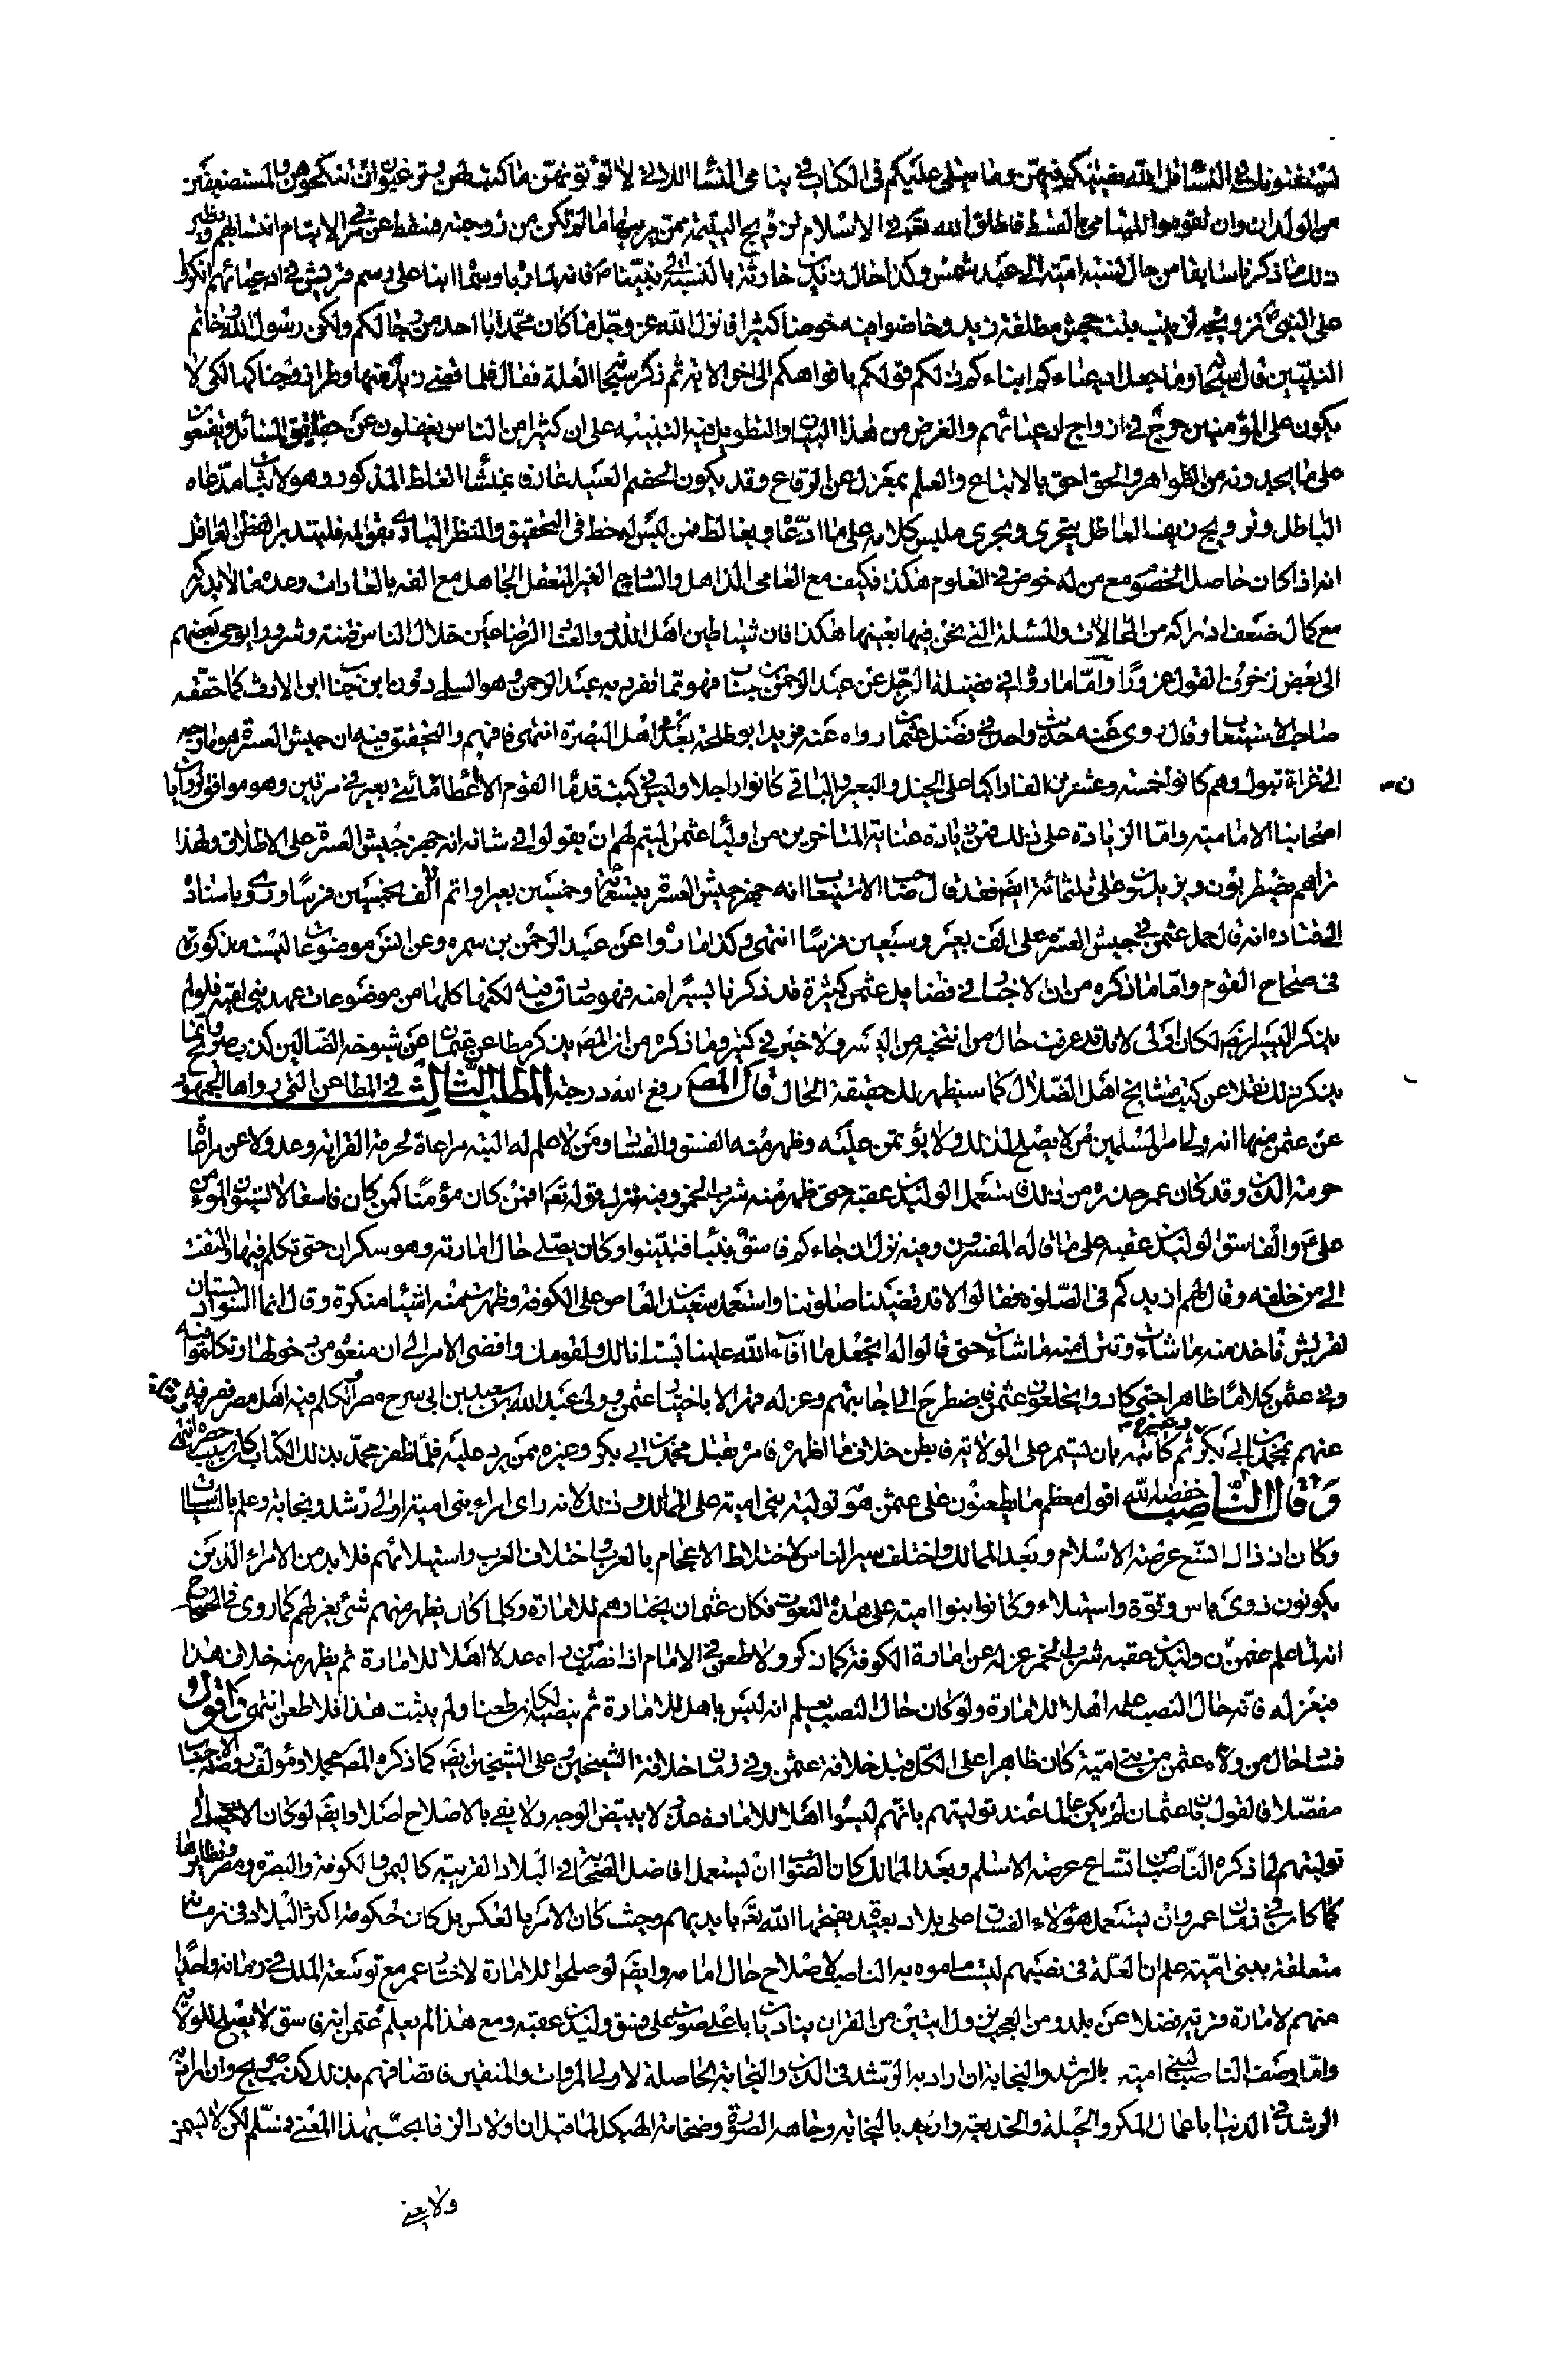 يستفتونك في النساء قل الله يفتيكم فيهن وما يتلى عليكم في الكتاب في يتامى النساء اللاتي لا تؤتونهن ما كتب لهن وترغبون ان تنكحوهن والمستضعفين
من الولدان وان تقوموا لليتامى بالقسط فاطلق الله تعالى في الاسلام تزويج اليتيمة ممن يربيها ما لم تكن من زوجته فسقط عن حرم الايتام انتسابهم ونظير
ذلك ما ذكرنا سابقا من حال نسبة امية الى عبد شمس وكذا حال زيد بن حارثة بالنسبة الى نبينا ص فانه لما رباه وسماه ابنا على رسم قريش في ادعيائهم انكروا
على النبي ص تزويجه لزينب بنت جحش مطلقة زيد وخاضوا منه خوضا كثيرا فانزل الله عز وجل ما كان محمد ابا احد من رجالكم ولكن رسول الله وخاتم
النبيين قال سبحانه وما جعل ادعياءكم ابناءكم ذلكم قولكم بافواهكم الى اخر الاية ثم ذكر سبحانه العلة فقال فلما قضى زيد منها وطرا زوجناكها لكي لا
يكون على المؤمنين حرج في ازواج ادعيائهم والغرض من هذا البيان والتطويل فيه التنبيه على ان كثيرا من الناس يغفلون عن حقائق المسائل ويقنعون
على ما يجدونه من الظواهر والحق احق بالاتباع والعلم بمعزل عن الوقاع وقد يكون الخصم العنيد عارفا بمنشأ الغلط المذكور وهو لاثبات مدعاه
الباطل وترويج زيفه العاطل يتحرى ويجرى ملبس كلامه على ما ادعاه ويغالط فمن ليس له حظ في التحقيق والنظر البادي يقع له فليتدبر الفطن العاقل
انه اذا كان حاصل الخصوم مع من له خوض في العلوم هكذا فكيف مع العامي الذاهل والساذج الغير المتعقل الجاهل مع الفه بالعادات وعده ما لا يدركه
مع كمال ضعف ادراكه من المحالات والمسئلة التي نحن فيها بعينها هكذا فان شياطين اهل الضلال والغواية الرضا عين خلال الناس فتنة وشرورا يوحى بعضهم
الى بعض زخرف القول غرورا واما ما رواه في فضيلة الرجل عن عبد الرحمن بن جناب فهو مما تفرد به عبد الرحمن وهو السلمى دون ابن جناب ابن الارت كما حققه
صاحب الاستيعاب وقال روى عنه حديث واحد في فضل عثمان رواه عنه فرقد ابو طلحة يعد في اهل البصرة انتهى فافهم والتحقيق فيه ان جيش العسرة هو ما وجه
الى غزاة تبوك وهم كانوا خمسة وعشرين الفا راكبا على الخيل والبعير والباقي كانوا راجلا وليس في كتب قدماء القوم الا اعطاء مائتي بعير في مرتين وهو موافق لروايات
اصحابنا الامامية واما الزيادة على ذلك فمن زيادة عناية المتأخرين من اولياء عثمن ليتم لهم ان يقولوا في شانه انه جهز جيش العسرة على الاطلاق ولهذا
تراهم يضطربون ويزيدون على ثلثمائة ايضا فقد قال صاحب الاستيعاب انه جهز جيش العسرة بتسعمائة وخمسين بعيرا واتم الالف بخمسين فرسا وروى باسناده
الى قتاده انه قال حمل عثمن في جيش العسرة على الف بعير وسبعين فرسا انتهى وكذا ما رووا عن عبد الرحمن بن سمره وعن انس موضوعات ليست مذكورة
في صحاح القوم واما ما ذكره من ان الاخبار في فضايل عثمن كثيرة قد ذكرنا يسيرا منه فهو صادق فيه لكنها كلها من موضوعات عهد بني امية فلو لم
يذكر اليسير ايضا لكان اولى لانه قد عرفت حال من انتخبه من اليسير ولا خير في كثير وما ذكره من ان المص يذكر مطاعن عثمان عن شيوخه الضالين كذب صريح وانما
يذكر ذلك نقلا عن كتب مشايخ اهل الضلال كما سيظهر لك حقيقة الحال قال المص رفع الله درجته المطلب الثالث في المطاعن التي رواها الجمهور
عن عثمن منها انه ولى امر المسلمين من لا يصلح لذلك ولا يؤتمن عليه وظهر منه الفسق والفساد ومن لا علم له البتة مراعاة لحرمة القرابة وعدولا عن مراعاة
حرمة الدين وقد كان عمر حذره من ذلك فاستعمل الوليد بن عقبة حتى ظهر منه شرب الخمر وفيه نزل قوله تعالى افمن كان مؤمنا كمن كان فاسقا لا يستوون المؤمن
علي ع والفاسق الوليد بن عقبة على ما قاله المفسرون وفيه نزل ان جاءكم فاسق بنبأ فتبينوا وكان يصلي حال امارته وهو سكران حتى تكلم فيها والتفت
الى من خلفه وقال لهم ازيدكم في الصلوة فقالوا لا قد قضينا صلوتنا واستعمل سعيد بن العاص على الكوفة وظهرت منه اشياء منكرة وقال انما السواد بستان
لقريش فاخذ منه ما شاءت وتترك منه ما شاءت حتى قالوا له اتجعل ما افاء الله علينا بستانا لك ولقومك وافضى الامر الى ان منعوه من دخولها وتكلموا فيه
وفي عثمن كلاما ظاهرا حتى كادوا يخلعون عثمن فاضطر ح الى اجابتهم وعزله قهرا لا باختيار عثمن وولى عبد الله بن سعيد بن ابي سرح مصر وتكلم فيه اهل مصر فصرفه
عنهم بمحمد بن ابي بكر ثم كاتبه بان يستمر على الولاية فابطن خلاف ما اظهره فامر بقتل محمد بن ابي بكر وغيره ممن يرد عليه فلما ظفر محمد بذلك الكتاب كان سبب حصره انتهى
وقال الناصب خفضه الله اقول معظم ما يطعنون على عثمن هو توليته بني امية على الممالك وذلك لانه راى امراء بني امية اولي رشد ونجابة وعلم بالسياسات
وكان اذ ذاك اتسع عرصة الاسلام وبعد الممالك واختلف سير الناس لاختلاط الاعجام بالعرب واختلاف العرب واستيلائهم فلا بد من الامراء الذين
يكونون ذوى باس وقوة واستيلاء وكانوا بنوا امية على هذه النعوت فكان عثمان يختارهم للامارة وكلما كان يظهر منهم شئ يغيرهم كما روى في الصحاح
انه لما علم عثمن ان وليد بن عقبه شرب الخمر عزله عن امارة الكوفة كما ذكر ولا طعن في الامام اذا نصب من راه عدلا اهلا للامارة ثم يظهر منه خلاف هذا
فيعزله فانه حال النصب علمه اهلا للامارة ولو كان حال النصب يعلم انه ليس باهل للامارة ثم ينصبه لكان طعنا ولم يثبت هذا فلا طعن انتهى واقول
فساد حال من ولاه عثمن من بني امية كان ظاهرا على الكل قبل خلافة عثمن وفي زمان خلافة الشيخين وعلى الشيخين ايضا كما ذكره المص مجملا ومؤلف روضة الاحباب
مفصلا فالقول بان عثمان لم يكن عالما عند توليتهم بانهم ليسوا اهلا للامارة عذر لا يبيض الوجه ولا يفى بالاصلاح اصلا وايضا لو كان الاحتياج الى
توليتهم لما ذكره الناصب من اتساع عرصة الاسلم وبعد الممالك كان الصواب ان يستعمل افاضل الصحابة في البلاد القريبة كاليمن والكوفة والبصرة ومصر ونظايرها
كما كان في زمان عمر وان يستعمل هؤلاء الفساق على بلاد بعيدة يفتحها الله تعالى بايديهم وحيث كان الامر بالعكس بل كان حكومة اكثر البلاد في زمانه
متعلقة ببني امية علم ان العلة في نصبهم ليست ما موه به الناصب لاصلاح حال امامه وايضا لو صلحوا للامارة لاختار عمر مع توسعة الملك في زمانه واحدا
منهم لامارة قرية فضلا عن بلد ومن العجب نزول ايتين من القران يناديان باعلى صوت على فسق وليد بن عقبه ومع هذا لم يعلم عثمن انه فاسق لا يصلح للولاية
واما وصف الناصب لبني امية بالرشد والنجابة ان اراد به الرشد في الدين والنجابة الحاصلة لاولي المروات والمتقين فاتصافهم بذلك كذب صريح وان اراد به
الرشد في الدنيا باعمال المكر والحيلة والخديعة واريد بالنجابة وجاهة الصورة وضخامة الهيكل لما قيل ان اولاد الزنا نجب بهذا المعنى فمسلم لكن لا يسمن
ولا يغنى